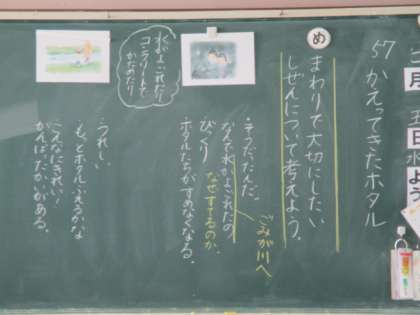 二月五日水よう
57 かえってきたホタル
め
まわりで大切にしたい
しぜんについて考えよう。
水がよごれたり
コンクリートで
かためたり
・そうだったんだ。
なんで水がよごれたの
ごみが川へ
びっくり
なぜすてるのか。
ホタルたちがすめなくなる。
・うれしい
・もっとホタルふえるかな
こんなにきれい!
がんばったかいがある。